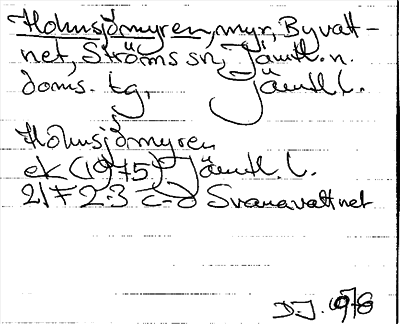 Holmsjömyren, myr, Byvatt-
net, Ströms sn, Jämtl. n.
doms. tg, Jämtl l.
Holmsjömyren
ek (1975) Jämtl. l.
21F 2-3 c-d Svanavattnet
D.J. 1978